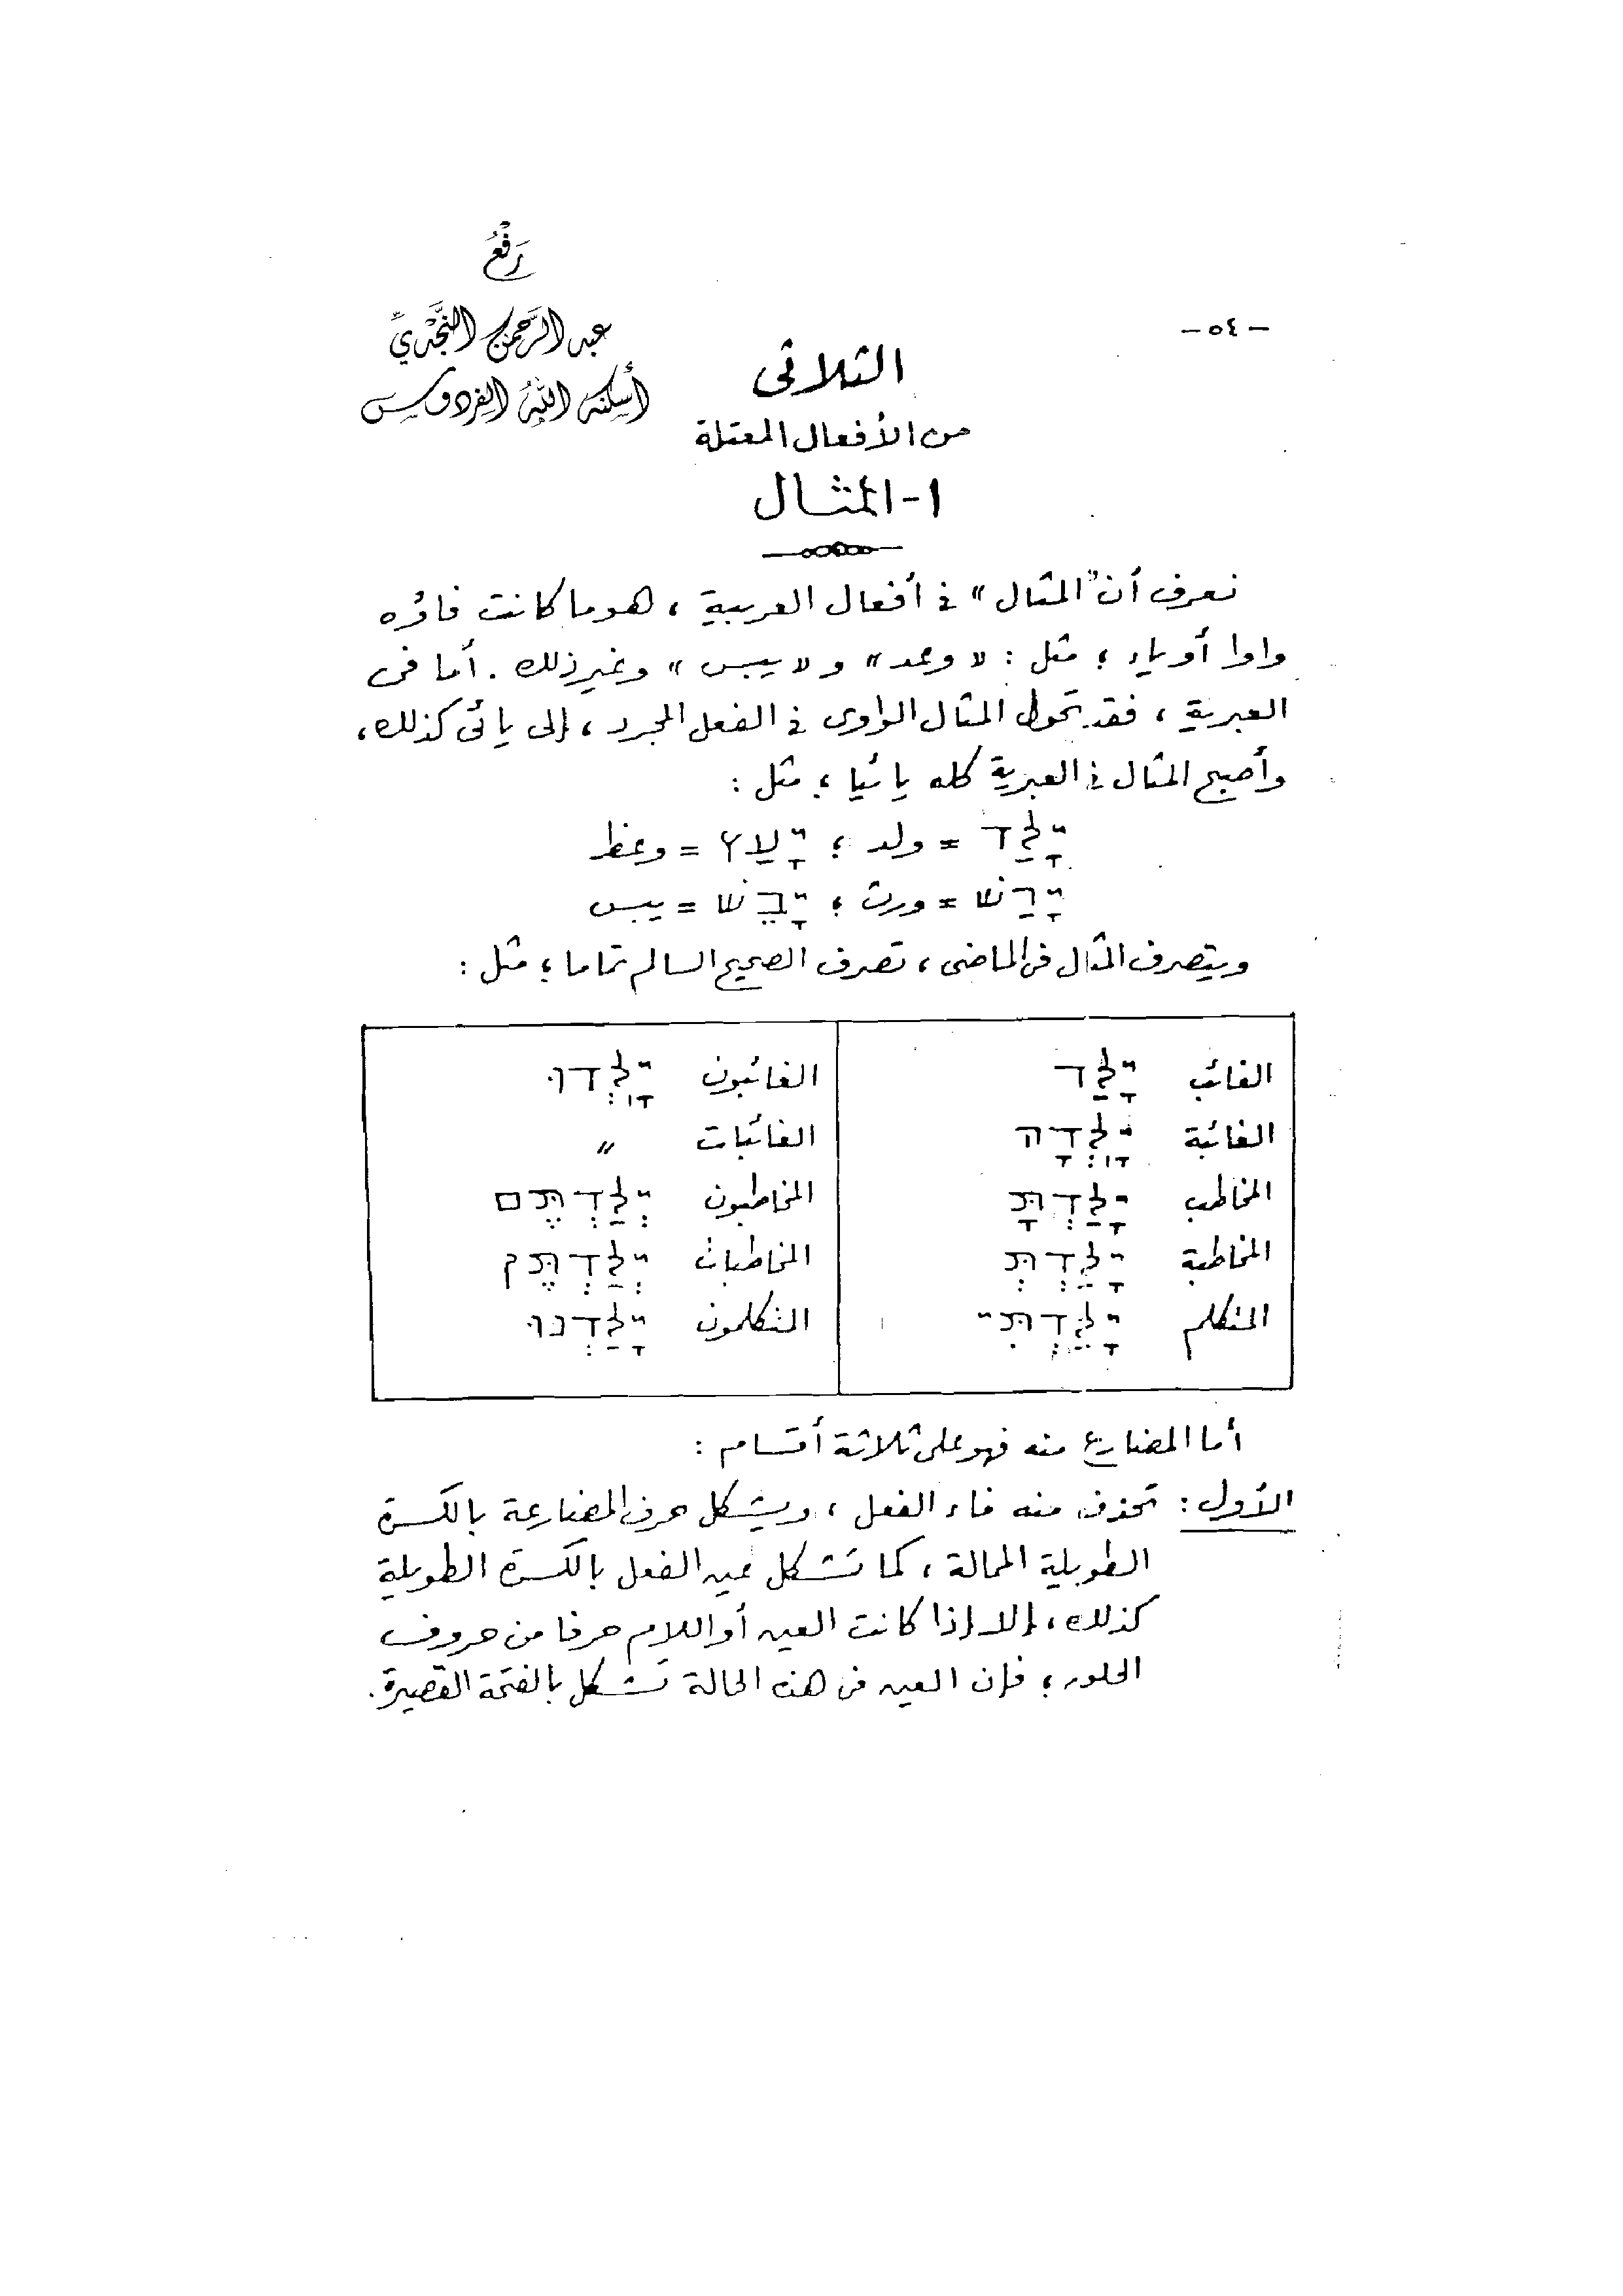 رَفْعُ
عبد الرَّحمن النَّجْدِيِّ
أسكنه اللهُ الفردوس
- ٥٤ -
الثلاثى
من الأفعال المعتلة
١- المثال
نعرف أن "المثال" فى أفعال العربية ، هو ما كانت فاؤه
واوا أو ياء ؛ مثل : "وعد" و "يبس" وغير ذلك . أما فى
العبرية ، فقد تحول المثال الواوى فى الفعل المجرد ، إلى يائى كذلك ،
وأصبح المثال فى العبرية كله يائيا ؛ مثل :
יָלַד = ولد ؛ יָעַץ = وعظ
יָרַשׁ = ورث ؛ יָבֵשׁ = يبس
ويتصرف المثال فى الماضى ، تصرف الصحيح السالم تماما ؛ مثل :
الغائب יָלַד الغائبون יָלְדוּ
الغائبة יָלְדָה الغائبات "
المخاطب יָלַדְתָּ المخاطبون יְלַדְתֶּם
المخاطبة יָלַדְתְּ المخاطبات יְלַדְתֶּן
المتكلم יָלַדְתִּי المتكلمون יָלַדְנוּ
أما المضارع منه فهو على ثلاثة أقسام :
الأول : تحذف منه فاء الفعل ، ويشكل حرف المضارعة بالكسرة
الطويلة الممالة ، كما تشكل عين الفعل بالكسرة الطويلة
كذلك ، إلا إذا كانت العين أو اللام حرفا من حروف
الحلق ؛ فإن العين فى هذه الحالة تشكل بالفتحة القصيرة .